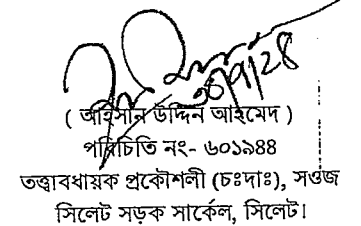 ( আহসান উদ্দিন আহমেদ )
পরিচিতি নং- ৬০১৯৪৪
তত্ত্বাবধায়ক প্রকৌশলী (চঃদাঃ), সওজ
সিলেট সড়ক সার্কেল, সিলেট।